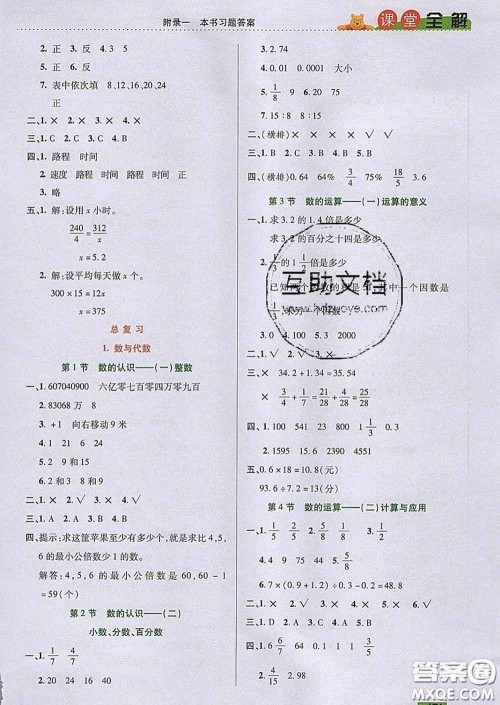 附录一 本书习题答案
课堂全解
2. 正 3. 反 4. 正
5. 正 6. 反
7. 表中依次填 8、12、16、20、24
正
二、1. × 2. √ 3. × 4. √
三、1. C 2. C 3. A 4. B
四、1. 路程 时间
2. 速度 路程 时间 路程 时间
3. 略
五、1. 解:设用 x 小时。
240/4 = 312/x
x=5.2
2. 解:设平均每天做 x 个。
300×15=12x
x=375
总复习
1. 数与代数
第1节 数的认识——(一)整数
一、1. 607040900 六亿零七百零四万零九百
2. 83068 万 8
3. +1 向右移动 9 米
4. 1 21 6 24
5. 20 16
6. 2 和 3 8 和 9
二、1. × 2. √ 3. √ 4. ×
三、1. A 2. A 3. B
四、提示:求这筐苹果至少有多少个,就是求 4、5、
6 的最小公倍数少 1 的数。
解答:4、5、6 的最小公倍数是 60,60-1
=59(个)
第2节 数的认识——(二)
小数、分数、百分数
一、1. 1/7 4/7
2. 20 24 16 40
3. 2.74
4. 0.01 0.0001 大小
5. 1/8 9
7. 15:8 8:15
二、(横排) × × √ √ √
三、1. B 2. D 3. B 4. B 5. B
四、(横排) 0.64 64% 3/4 75% 18/5 3.6
第3节 数的运算——(一)运算的意义
一、1. 求 3.2 的 1.4 倍是多少
求 3.2 的百分之十四是多少
2. 1/3 的 1 1/2 倍是多少
3. 1000 4. 10 5. 3 2900
二、× × × √
三、= > = 34.2÷1.34=34.2
3/4 1/7 = 21/28 + 4/28 = 25/28
四、1. 100 541 23 0.8 1 1/3
2. 1595 4.6 2310 2 1/2
五、0.6×18=10.8(元)
93.6÷7.2=13(分)
第4节 数的运算——(二)计算与应用
一、1. 1/5 2/5
2. 4 79 4 2/7
3. 70.2
二、1. × 2. × 3. √ 4. √
三、1. C 2. B 3. C 4. A
四、1. 6 6/7 64 0.3 1 1/3
2. 4/15
互助文档
答案圈
MXQE.COM